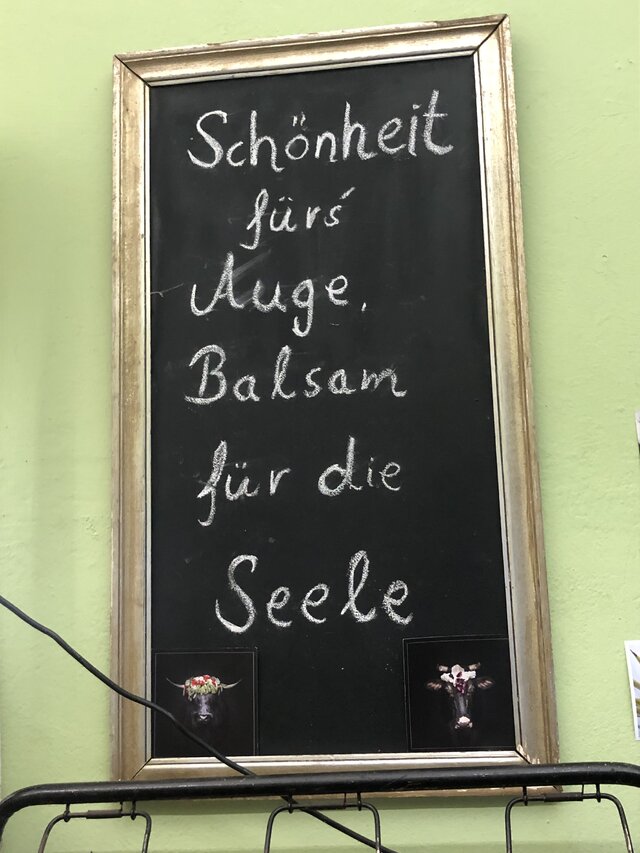 Schönheit
fürs´
Auge,
Balsam
für die
Seele